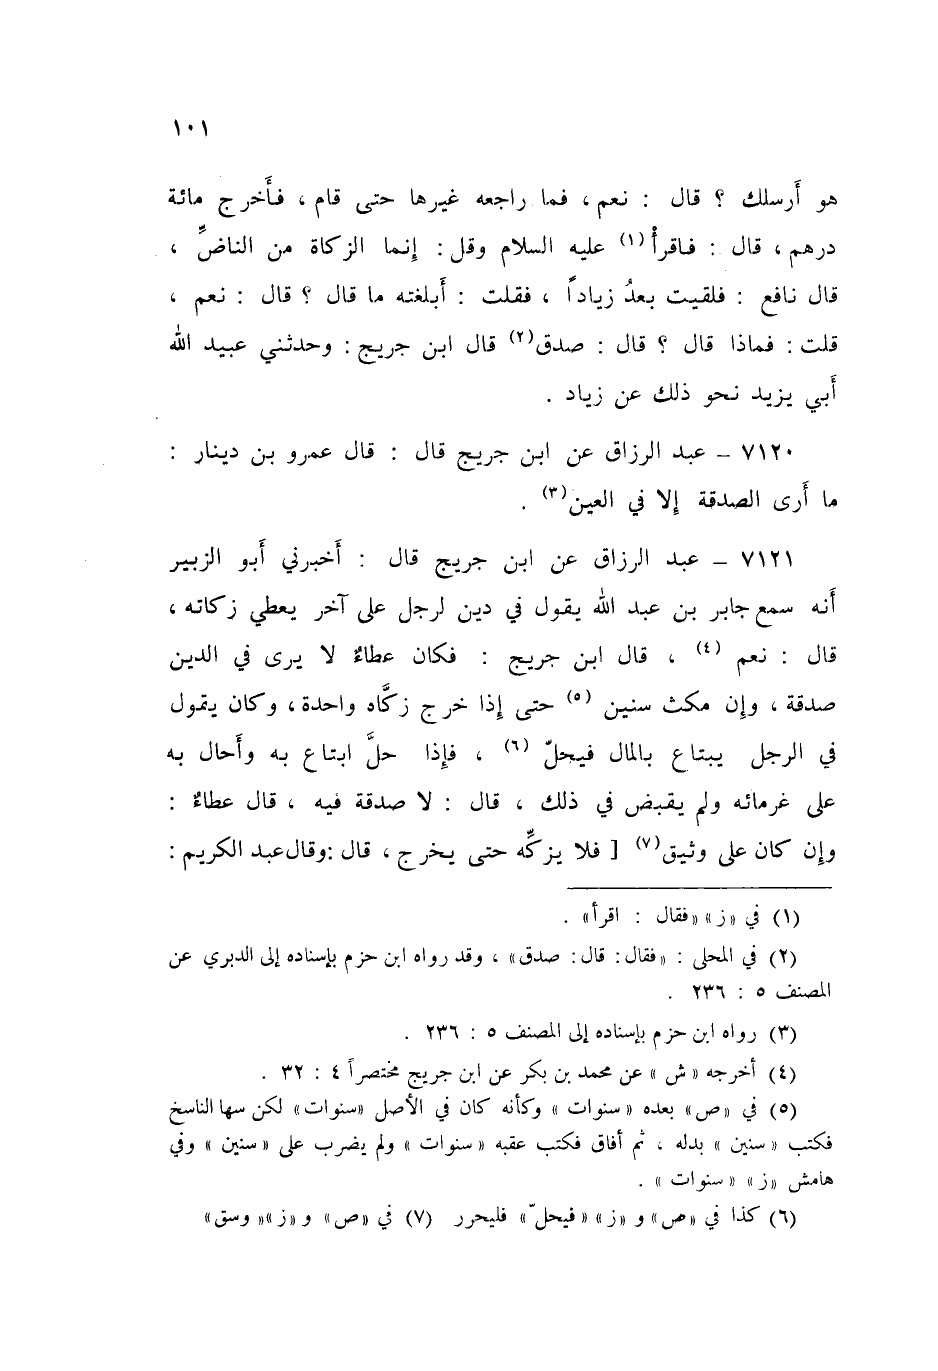 ١٠١
هو أَرسلك ؟ قال : نعم ، فما راجعه غيرها حتى قام ، فأَخرج مائة
درهم ، قال : فاقرأْ (١) عليه السلام وقل : إنما الزكاة من الناضِّ ،
قال نافع : فلقيت بعدُ زياداً ، فقلت : أَبلغته ما قال ؟ قال : نعم ،
قلت : فماذا قال ؟ قال : صدق (٢) قال ابن جريج : وحدثني عبيد الله
أَبي يزيد نحو ذلك عن زياد .
٧١٢٠ – عبد الرزاق عن ابن جريج قال : قال عمرو بن دينار :
ما أَرى الصدقة إلا في العين (٣) .
٧١٢١ – عبد الرزاق عن ابن جريج قال : أَخبرني أَبو الزبير
أَنه سمع جابر بن عبد الله يقول في دين لرجل على آخر يعطي زكاته ،
قال : نعم (٤) ، قال ابن جريج : فكان عطاءٌ لا يرى في الدين
صدقة ، وإن مكث سنين (٥) حتى إذا خرج زكَّاه واحدة ، وكان يقول
في الرجل يبتاع بالمال فيحلّ (٦) ، فإذا حلَّ ابتاع به وأَحال به
على غرمائه ولم يقبض في ذلك ، قال : لا صدقة فيه ، قال عطاءٌ :
وإن كان على وثيق (٧) [ فلا يزكِّه حتى يخرج ، قال : وقال عبد الكريم :
(١) في «ز» «فقال : اقرأ» .
(٢) في المحلى : «فقال : قال : صدق» ، وقد رواه ابن حزم بإسناده إلى الدبري عن
المصنف ٥ : ٢٣٦ .
(٣) رواه ابن حزم بإسناده إلى المصنف ٥ : ٢٣٦ .
(٤) أخرجه «ش» عن محمد بن بكر عن ابن جريج مختصراً ٤ : ٣٢ .
(٥) في «ص» بعده «سنوات» وكأنه كان في الأصل «سنوات» لكن سها الناسخ
فكتب «سنين» بدله ، ثم أفاق فكتب عقبه «سنوات» ولم يضرب على «سنين» وفي
هامش «ز» «سنوات» .
(٦) كذا في «ص» و «ز» «فيحلّ» فليحرر (٧) في «ص» و «ز» «وسق»